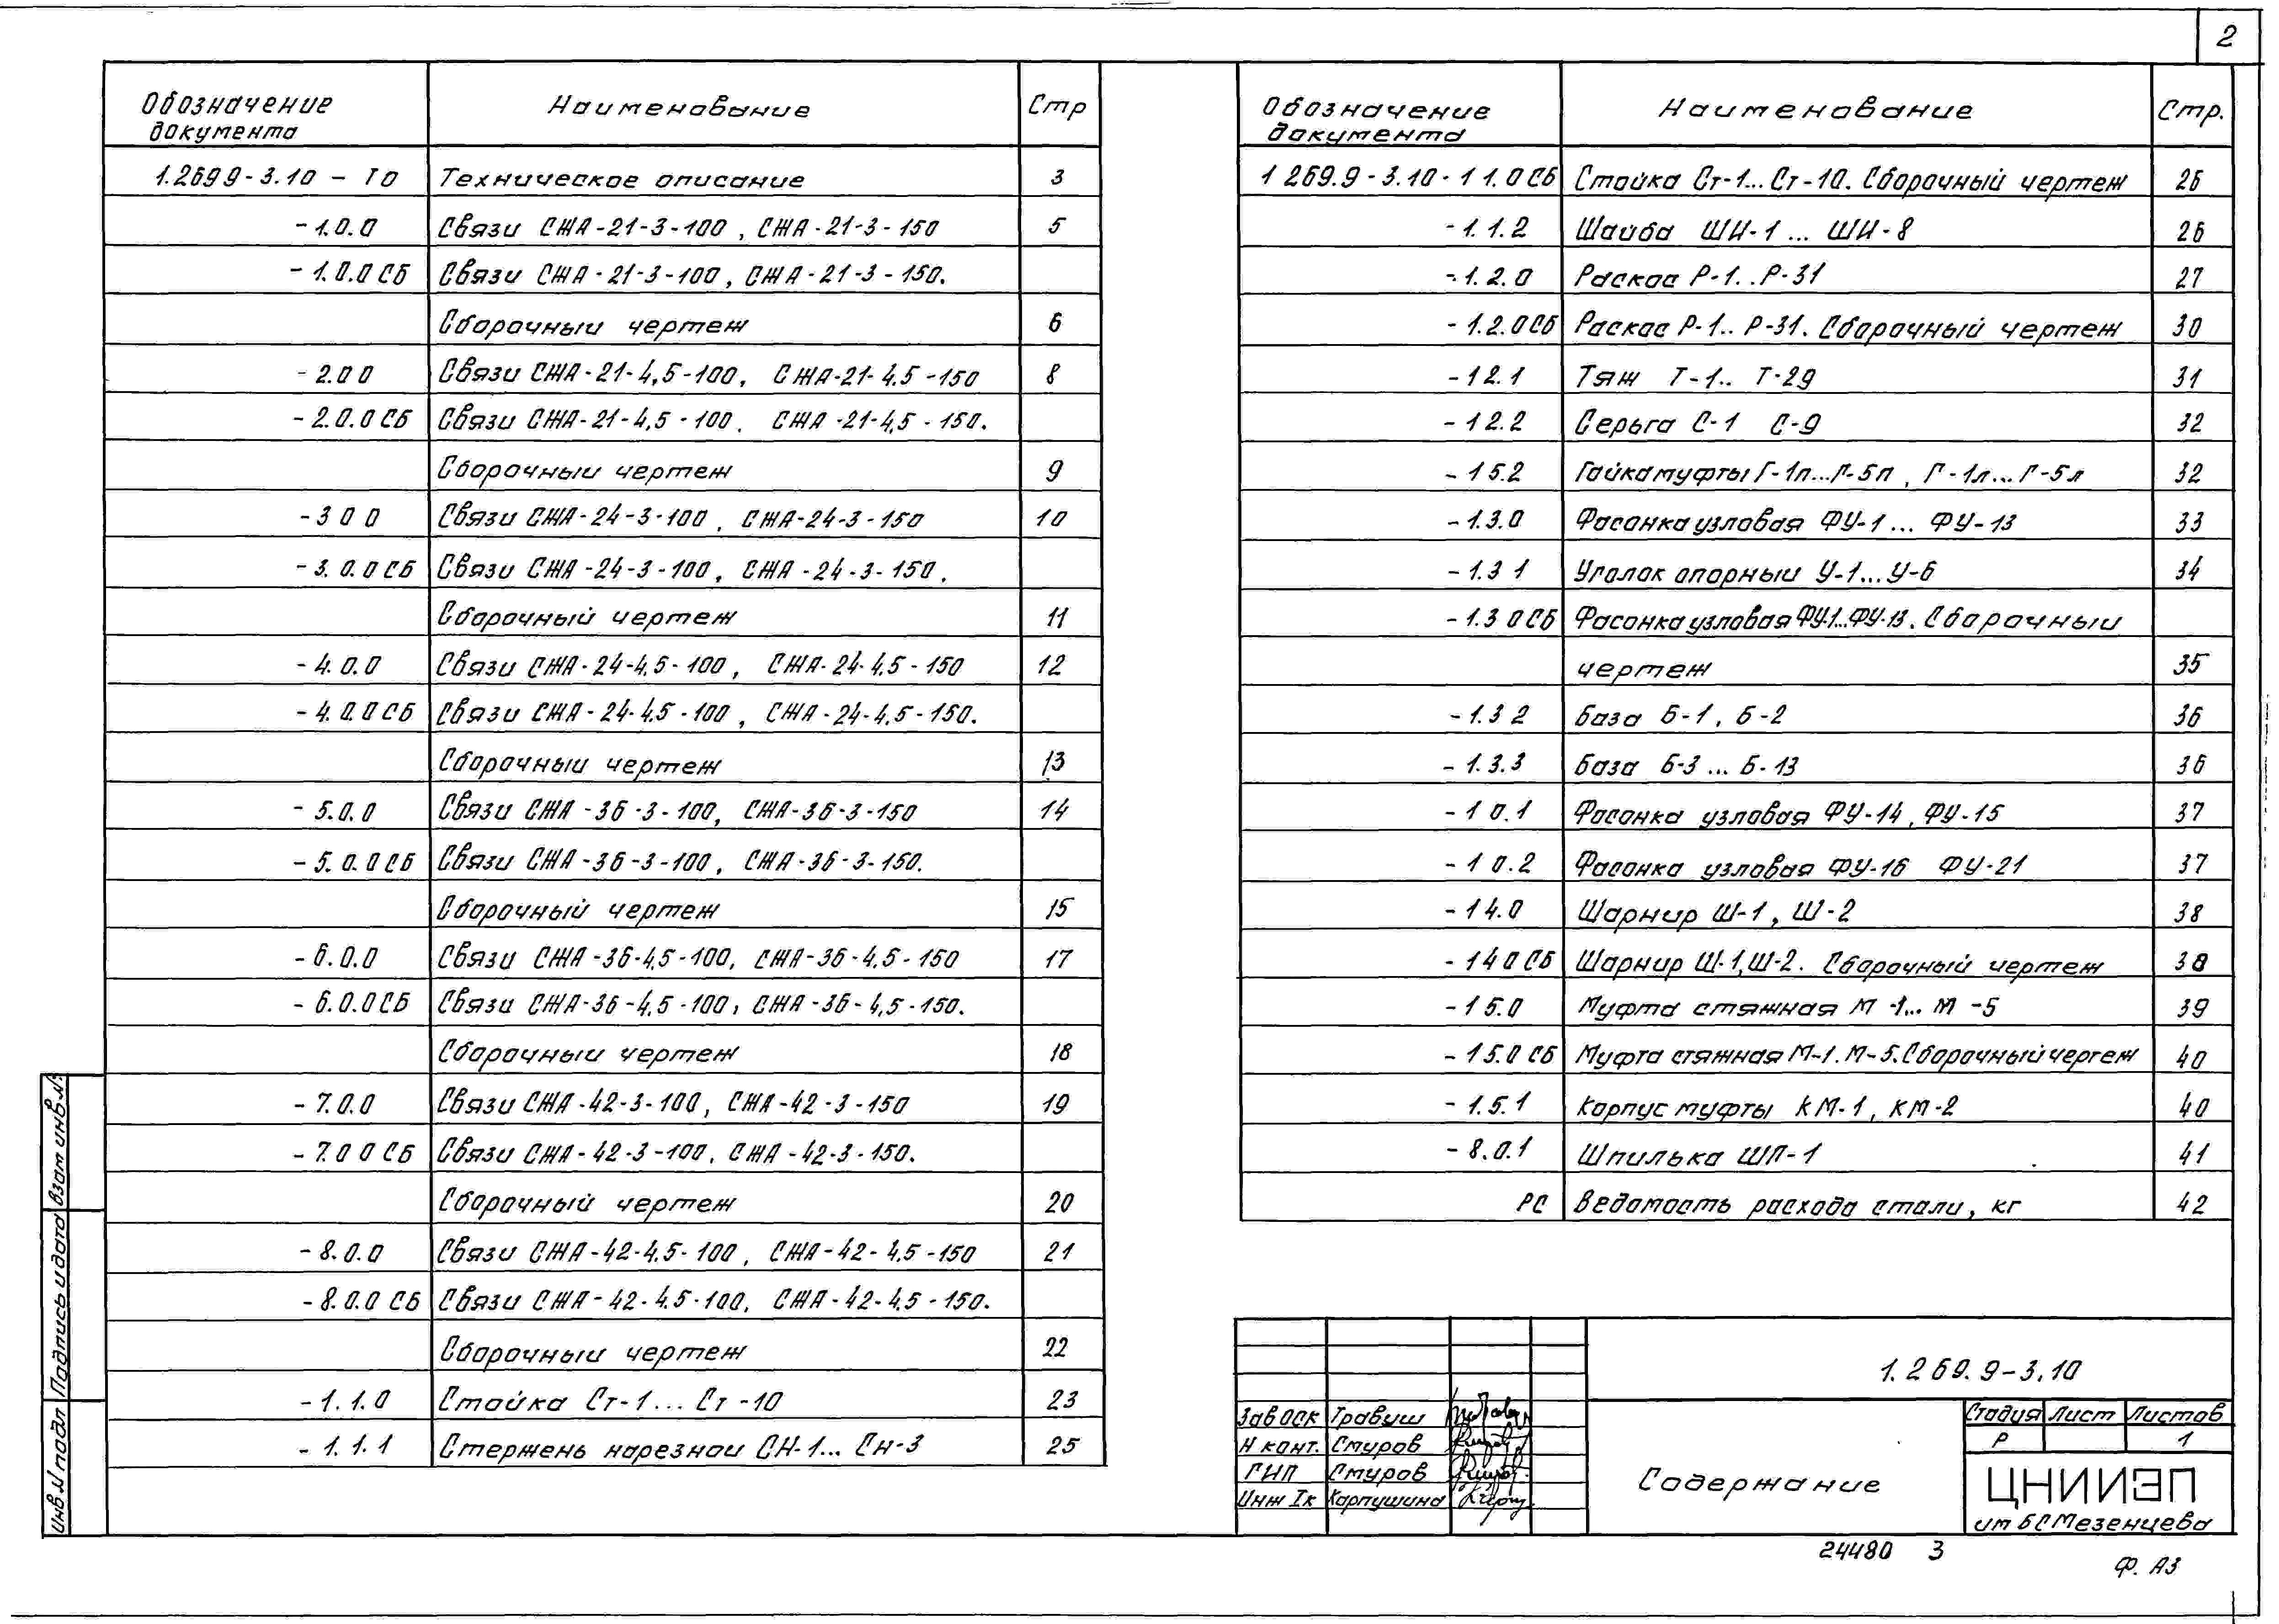 2
Обозначение документа Наименование Стр
1.269 9-3.10 - ТО Техническое описание 3
- 1.0.0 Связи СЖА-21-3-100, СЖА-21-3-150 5
- 1.0.0 СБ Связи СЖА-21-3-100, СЖА-21-3-150.
Сборочный чертеж 6
- 2.0 0 Связи СЖА-21-4,5-100, СЖА-21-4.5-150 8
- 2.0.0 СБ Связи СЖА-21-4,5-100, СЖА-21-4,5-150.
Сборочный чертеж 9
- 3 0 0 Связи СЖА-24-3-100, СЖА-24-3-150 10
- 3.0.0 СБ Связи СЖА-24-3-100, СЖА-24-3-150.
Сборочный чертеж 11
- 4.0.0 Связи СЖА-24-4,5-100, СЖА-24-4,5-150 12
- 4.0.0 СБ Связи СЖА-24-4,5-100, СЖА-24-4,5-150.
Сборочный чертеж 13
- 5.0.0 Связи СЖА-36-3-100, СЖА-36-3-150 14
- 5.0.0 СБ Связи СЖА-36-3-100, СЖА-36-3-150.
Сборочный чертеж 15
- 6.0.0 Связи СЖА-36-4,5-100, СЖА-36-4,5-150 17
- 6.0.0 СБ Связи СЖА-36-4,5-100, СЖА-36-4,5-150.
Сборочный чертеж 18
- 7.0.0 Связи СЖА-42-3-100, СЖА-42-3-150 19
- 7.0 0 СБ Связи СЖА-42-3-100, СЖА-42-3-150.
Сборочный чертеж 20
- 8.0.0 Связи СЖА-42-4,5-100, СЖА-42-4,5-150 21
- 8.0.0 СБ Связи СЖА-42-4.5-100, СЖА-42-4,5-150.
Сборочный чертеж 22
- 1.1.0 Стойка Ст-1... Ст-10 23
- 1.1.1 Стержень нарезной СН-1... Сн-3 25
Обозначение документа Наименование Стр.
1 269.9-3.10-1 1.0 СБ Стойка Ст-1... Ст-10. Сборочный чертеж 26
- 1.1.2 Шайба ШИ-1 ... ШИ-8 26
- 1.2.0 Раскос Р-1..Р-31 27
- 1.2.0 СБ Раскос Р-1.. Р-31. Сборочный чертеж 30
- 1 2.1 Тяж Т-1.. Т-29 31
- 1 2.2 Серьга С-1 С-9 32
- 1 5.2 Гайка муфты Г-1п...Г-5п, Г-1л...Г-5л 32
- 1.3.0 Фасонка узловая ФУ-1 ... ФУ-13 33
- 1.3 1 Уголок опорный У-1...У-6 34
- 1.3 0 СБ Фасонка узловая ФУ-1...ФУ-13. Сборочный
чертеж 35
- 1.3 2 База Б-1, Б-2 36
- 1.3.3 База Б-3 ... Б-13 36
- 1 0.1 Фасонка узловая ФУ-14, ФУ-15 37
- 1 0.2 Фасонка узловая ФУ-16 ФУ-21 37
- 1 4.0 Шарнир Ш-1, Ш-2 38
- 1 4 0 СБ Шарнир Ш-1, Ш-2. Сборочный чертеж 38
- 1 5.0 Муфта стяжная М-1... М-5 39
- 1 5.0 СБ Муфта стяжная М-1. М-5. Сборочный чертеж 40
- 1.5.1 Корпус муфты КМ-1, КМ-2 40
- 8.0.1 Шпилька ШП-1 41
РС Ведомость расхода стали, кг 42
1.269.9-3.10
Зав ОСК Травуш
Н конт. Смуров
ГИП Смуров
Инж Iк Карпушина
Содержание
Стадия Лист Листов
Р 1
ЦНИИЭП
им БС Мезенцева
24480 3
Ф. А3
Взам инв.№
Подпись и дата
Инв № подл